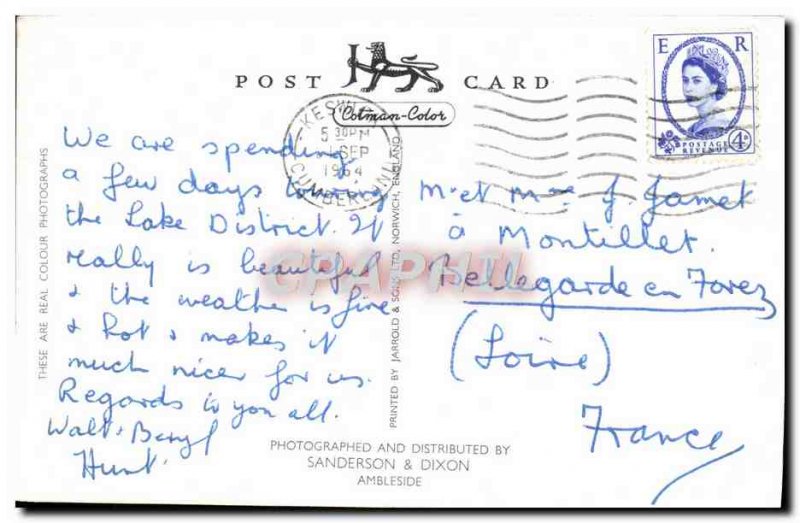 POST CARD
Colman-Color
E R
POSTAGE
REVENUE
4D
KESWICK
5 30PM
SEP
1964
CUMBERLAND
We are spending
a few days touring
the Lake District. It
really is beautiful
& the weather is fine
& hot & makes it
much nicer for us.
Regards to you all.
Walt & Beryl
Hunt.
M. et Mme J. Jamet
à Montillet.
Bellegarde en Forez
(Loire)
France
THESE ARE REAL COLOUR PHOTOGRAPHS
PRINTED BY JARROLD & SONS LTD, NORWICH, ENGLAND
PHOTOGRAPHED AND DISTRIBUTED BY
SANDERSON & DIXON
AMBLESIDE